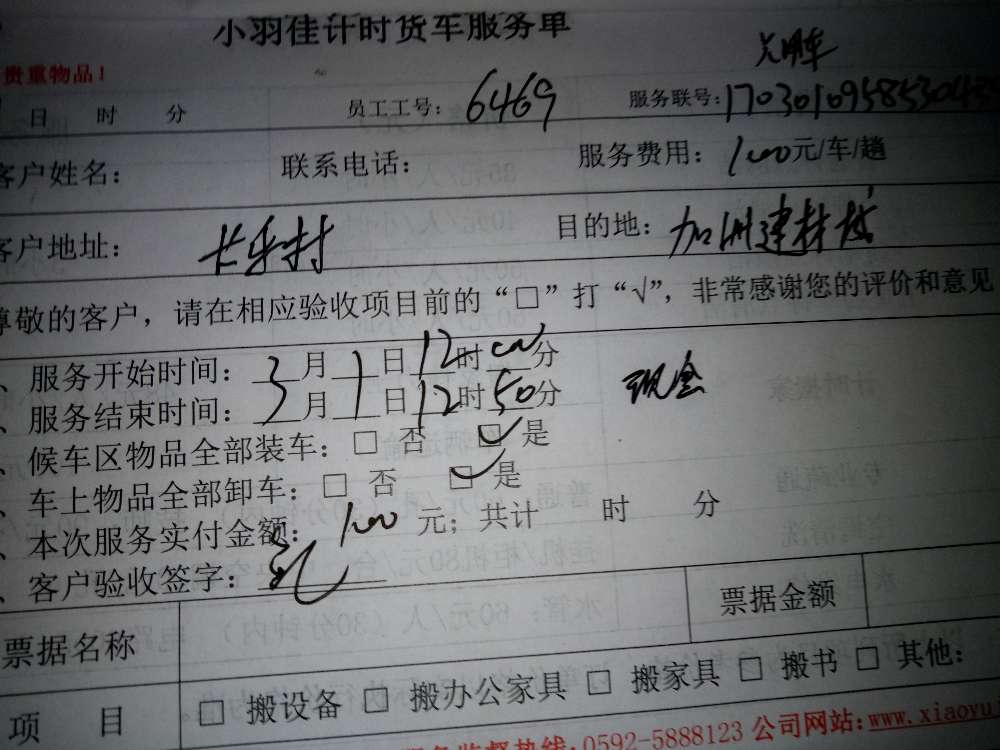 小羽佳计时货车服务单
贵重物品！
日 时 分 员工工号：6469 服务联号：
客户姓名： 联系电话： 服务费用：100元/车/趟
客户地址：长乐村 目的地：加洲建材
尊敬的客户，请在相应验收项目前的“□”打“√”，非常感谢您的评价和意见
、服务开始时间：3月1日12时00分
、服务结束时间：3月1日12时50分 现金
、候车区物品全部装车：□ 否 ☑ 是
、车上物品全部卸车：□ 否 ☑ 是
、本次服务实付金额：100元；共计 时 分
、客户验收签字：
票据名称 票据金额
项 目 □ 搬设备 □ 搬办公家具 □ 搬家具 □ 搬书 □ 其他：
服务监督热线：0592-5888123 公司网站：www.xiaoyu